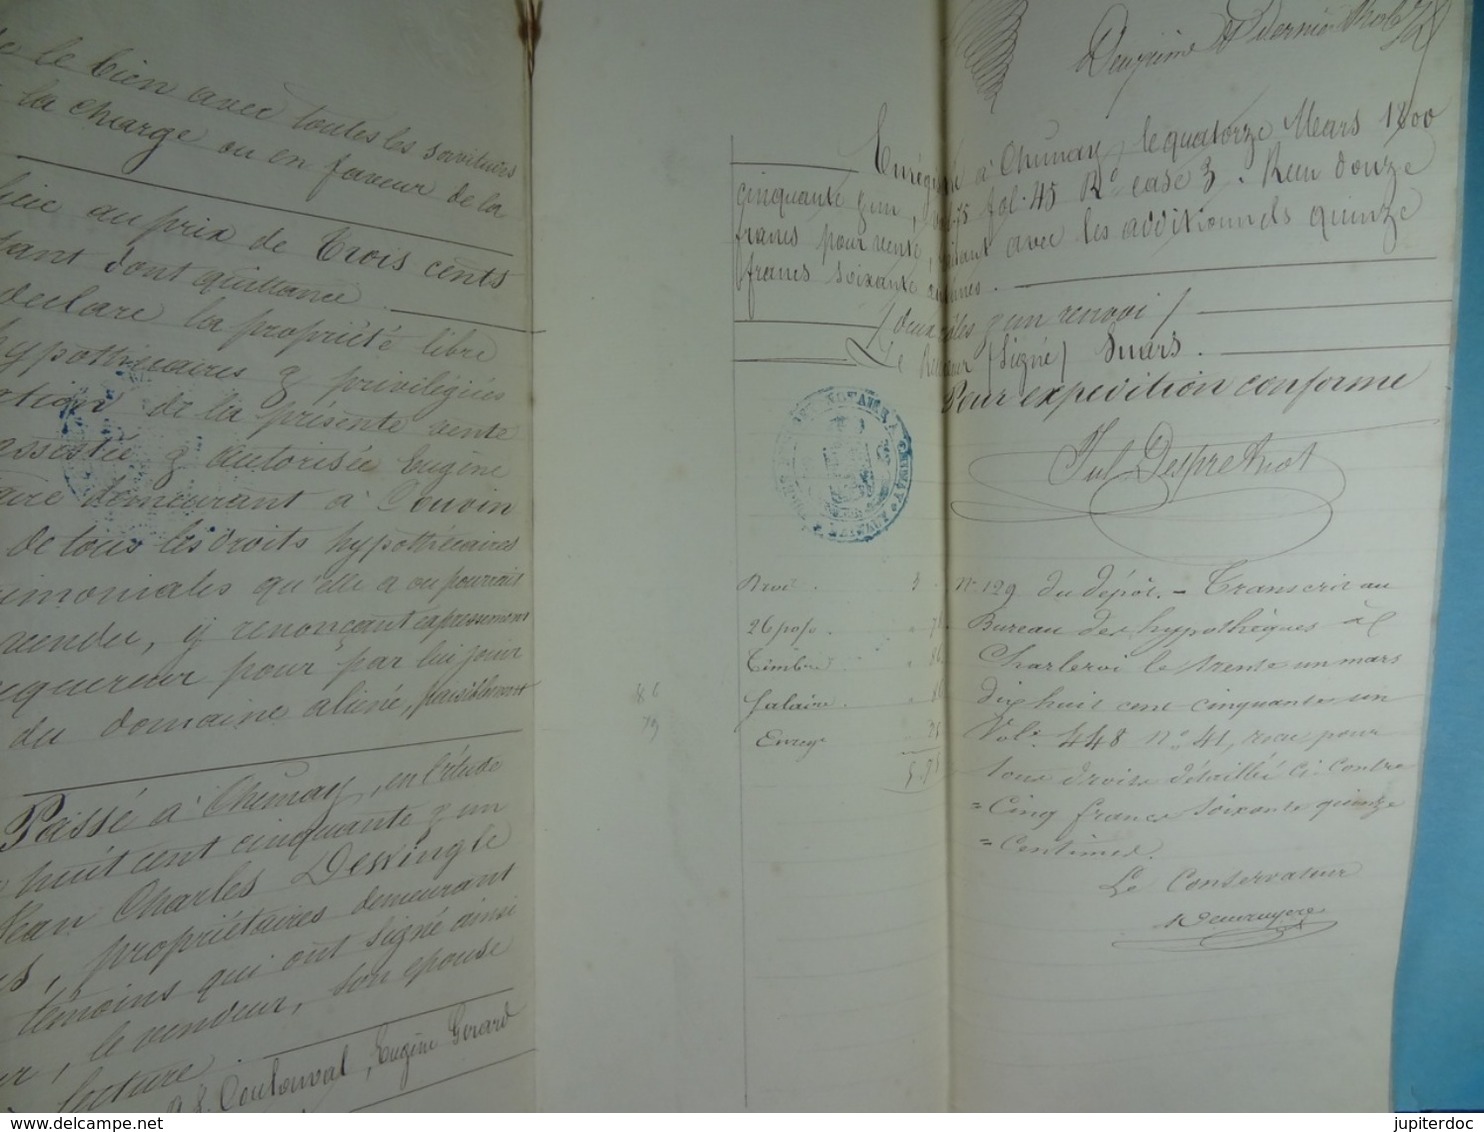 le bien avec toutes les servitudes
la charge ou en faveur de la
au prix de Trois cents
tant dont quittance
declare la propriété libre
hypothécaires & privilégiées
de la présente vente
assistée & autorisée Eugène
demeurant à Couvin
de tous les droits hypothécaires
qu'elle a ou pourrait
y renonçant expressement
pour par lui jouir
du domaine aliéné, paisiblement
Passé à Chimay, en l'étude
huit cent cinquante & un
Jean Charles Desvingle
propriétaires demeurant
témoins qui ont signé ainsi
le vendeur, son épouse
lecture
Coulonval, Eugène Gérard
Deuxième & dernier Rôle
Enrégistré à Chimay, le quatorze Mars 1800
cinquante & un, vol. 75 fol. 45 R° case 3. Reçu douze
francs pour vente, faisant avec les additionnels quinze
francs soixante centimes.
/ deux rôles & un renvoi /
Le Receveur (Signé)
Pour expédition conforme
Droit 3
Timbre
Salaire
N° 129 du dépôt. - Transcrit au
Bureau des hypothèques à
Charleroi le trente un mars
dix huit cent cinquante un
Vol. 448 n° 41, reçu pour
tous droits détaillés ci contre
= Cinq francs soixante quinze
= Centimes.
Le Conservateur
86
79
jupiterdoc